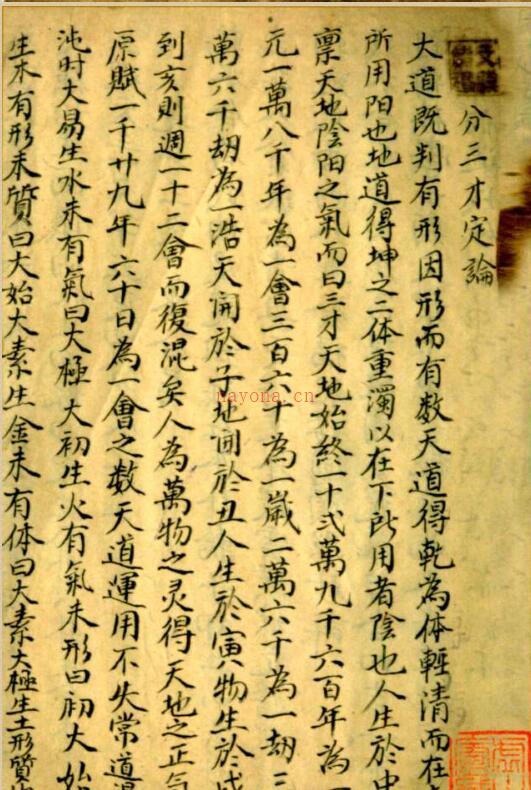 分三才定論
大道既判有形因形而有数天道得乾為体輕清而在
所用阳也地道得坤之二体重濁以在下所用者陰也人生於中
禀天地陰阳之氣而曰三才天地始终一十弍萬九千六百年為一
元一萬八千年為一會三百六十為一歲二萬六千為一劫三
萬六千劫為一浩天開於子地闢於丑人生於寅物生於戌
到亥則週一十二會而復混矣人為萬物之灵得天地之正氣
原賦一千廿九年六十日為一會之数天道運用不失常道混
沌时大易生水未有氣曰大極大初生火有氣未形曰初大始
生木有形未質曰大始大素生金未有体曰大素大極生土形質
nayona.cn